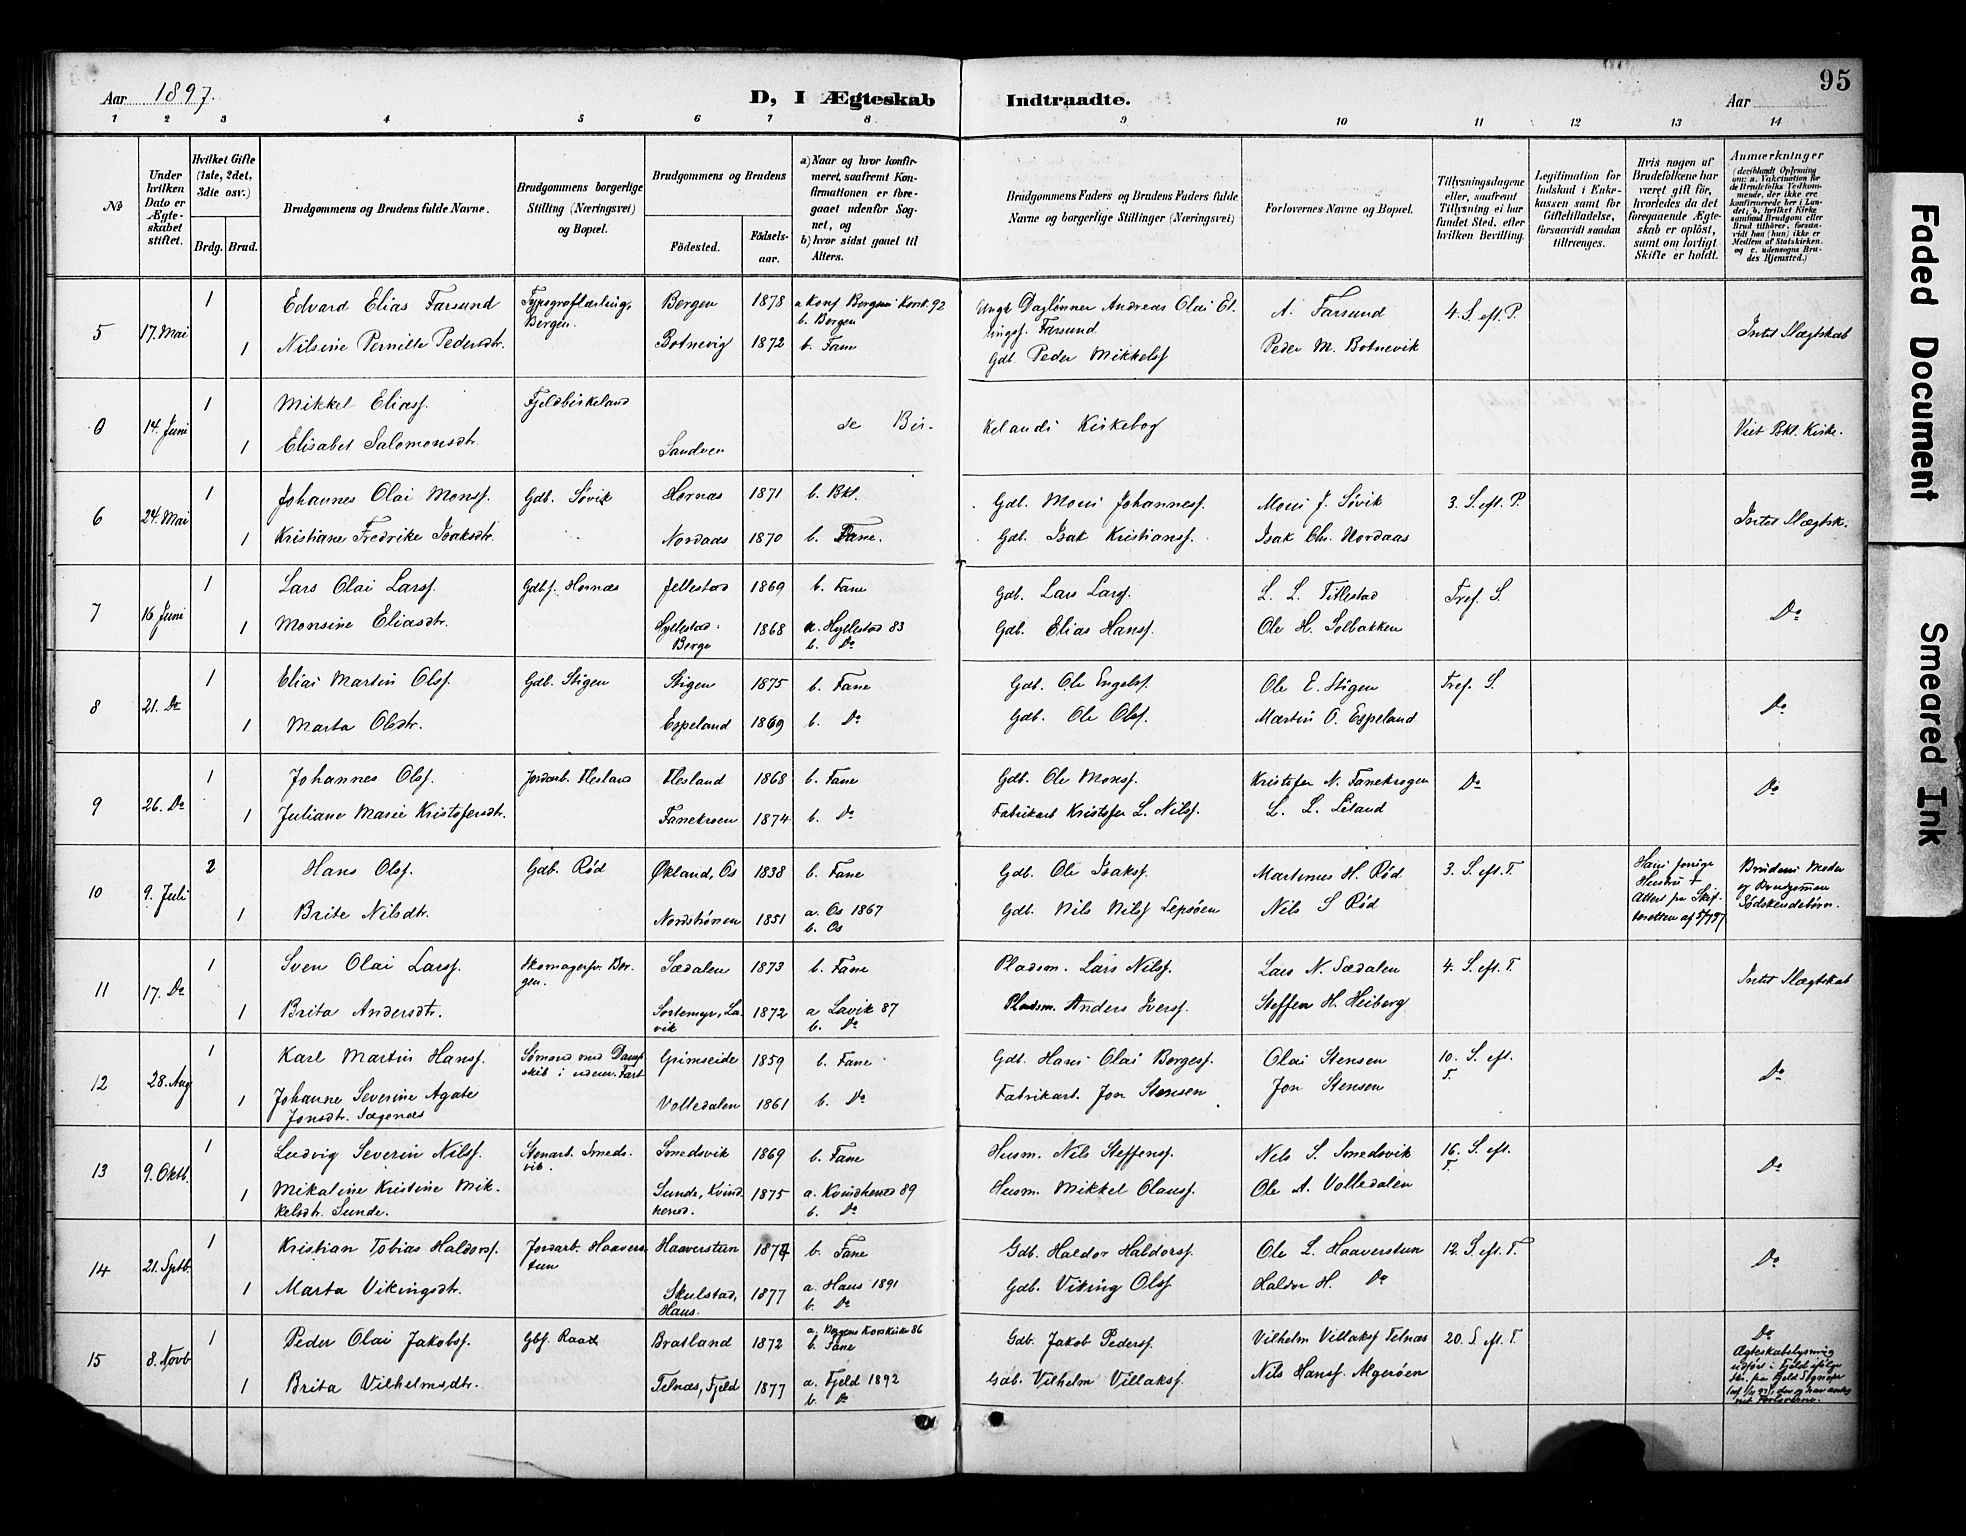 Aar 1897.
D, I Ægteskab
Indtraadte.
Aar
95
1 2 3 4 5 6 7 8 9 10 11 12 13 14
No
Under hvilken Dato er Ægteskabet stiftet.
Hvilket Gifte (1ste, 2det, 3die osv.)
Brdg. Brud.
Brudgommens og Brudens fulde Navne.
Brudgommens borgerlige Stilling (Næringsvei) og Bopæl.
Brudgommens og Brudens
Födested.
Födselsaar.
a) Naar og hvor konfirmeret, saafremt Konfirmationen er foregaaet udenfor Sognet, og
b) hvor sidst gaaet til Alters.
Brudgommens Faders og Brudens Faders fulde Navne og borgerlige Stillinger (Næringsvei)
Forlovernes Navne og Bopæl.
Tillysningsdagene eller, saafremt Tillysning ei har fundet Sted, efter hvilken Bevilling.
Legitimation for Indskud i Enkekassen samt for Giftetilladelse, forsaavidt saadan tiltrænges.
Hvis nogen af Brudefolkene har været gift för, hvorledes da det foregaaende Ægteskab er oplöst, samt om lovligt Skifte er holdt.
Anmærkninger
(deriblandt Oplysning om: a. Vakcination for de Brudefolks Vedkommende, der ikke ere konfirmerede her i Landet; b. hvilket Kirkesamfund Brudgom eller Brud tilhörer, forsaavidt han (hun) ikke er Medlem af Statskirken, og c. udensogns Brudes Hjemsted.)
5 17. Mai 1 Edvard Elias Farsund Typograflærling, Bergen. Bergen 1878 a Konf Bergens Korsk. 92 b. Bergen
Ungk Daglönner Andreas Olai Elingsf. Farsund A. Farsund 4. S. eft. P. Intet Slægtskab
1 Nilsine Pernille Pedersdtr. Botnevig 1872 b. Fane
Gdb. Peder Mikkelsf Peder M. Botnevik
0 14. Juni 1 Mikkel Eliasf. Fjeldbirkeland
se Birkelands Kirkebog Viet Bkl. Kirke.
1 Elisabet Salomonsdtr. Sandven
6 24. Mai 1 Johannes Olai Monsf. Gdb. Søvik Hornæs 1871 b. Bkl. Gdb. Mons Johannesf. Mons J. Søvik 3. S. eft. P. Intet Slægtsk.
1 Kristiane Fredrike Isaksdtr. Nordaas 1870 b. Fane. Gdb. Isak Kristiansf. Isak Chr. Nordaas
7 16 Juni 1 Lars Olai Larsf. Gdbf. Hornæs Jellestad 1869 b. Fane Gdb. Lars Larsf. L. L. Titlestad Tref. S. Do
1 Monsine Eliasdtr. Hyllestad: Berge 1868 a. Hyllestad 83 b. Do Gdb. Elias Hansf. Ole H. Solbakken
8 21. Do 1 Elias Martin Olsf. Gdb. Stigen Stigen 1875 b. Fane Gdb. Ole Engelsf. Ole E. Stigen Tref. S. Do
1 Marta Olsdtr. Espeland 1869 b. Do Gdb. Ole Olsf. Martin O. Espeland
9 26. Do 1 Johannes Olsf. Jordarb. Flesland Flesland 1868 b. Fane Gdb. Ole Monsf. Kristofer N. Fanekrogen Do Do
1 Juliane Marie Kristofersdtr. Fanekroen 1874 b. Do Fabrikarb Kristofer L. Nilsf. L. L. Liland
10 9. Juli 2 Hans Olsf. Gdb. Rød Økland, Os 1838 b. Fane Gdb. Ole Isaksf. Martinus H. Rød 3. S. eft. T.
Hans forrige Hustru + Attest fra Skifteretten af 5/7 97
Brudens Moder og Brudgommen Södskendebörn.
1 Brite Nilsdtr. Nordstrønen 1851 a. Os 1867 b. Os Gdb. Nils Nilsf Lepsøen Nils S Rød
11 17. Do 1 Sven Olai Larsf. Skomagersv. Bergen. Sædalen 1873 b. Fane Pladsm. Lars Nilsf. Lars N. Sædalen 4. S. eft. T. Intet Slægtskab
1 Brita Andersdtr. Sortemyr, Lavik 1872 a Lavik 87 b. Do Pladsm. Anders Iversf. Steffen H. Heiberg
12 28. Aug 1 Karl Martin Hansf. Sømand med Dampskib i udenr. Fart Grimseide 1859 b. Fane Gdb. Hans Olai Børgesf. Olai Stensen 10. S. eft. T. Do
1 Johanne Severine Agate Jonsdtr. Sægenæs Volledalen 1861 b. Do Fabrikarb. Jon Stensen Jon Stensen
13 9. Oktb. 1 Ludvig Severin Nilsf. Stenarb. Smedsvik. Smedsvik 1869 b. Fane Husm. Nils Steffensf. Nels S. Smedsvik 16. S. eft. T. Do
1 Mikaline Kristine Mikkelsdtr. Sunde. Sunde, Kvindherred. 1875 a. Kvindherred 89 b. Do Husm. Mikkel Olausf. Ole A. Volledalen
14 21. Sptb. 1 Kristian Tobias Haldorsf. Jordarb. Haaverstun Haaverstun 1874 b. Fane Gdb. Haldor Haldorsf. Ole L. Haaverstun 12. S. eft. T. Do
1 Marta Vikingsdtr. Skulstad, Haus. 1877 a. Haus 1891 b. Do Gdb. Viking Olsf. Haldor H. Do
15 8. Novb 1 Peder Olai Jakobsf. Gbf. Raa Bratland 1872 a. Bergens Korskirke 86 b. Fane Gdb. Jakob Pedersf. Vilhelm Villaksf Telnæs 20. S. eft. T.
Do Ægteskabslysning udført i Fjeld ifølge
1 Brita Vilhelmsdtr. Telnæs, Fjeld 1877 a. Fjeld 1892 b. Do Gdb. Vilhelm Villaksf. Nils Hansf. Algerøen
Faded Document
Smeared Ink